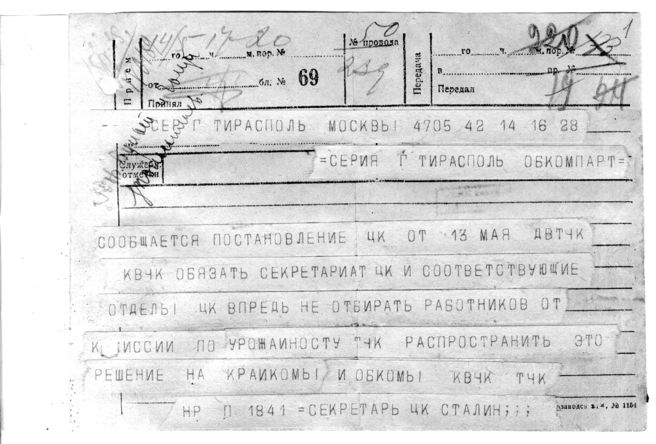 14/5 17 20
№ провода 50
220
Прием
го ч. м. пор. №
от бл. № 69
Принял
259
Передача
го ч. м. пор. №
в пр. №
Передал
19
СЕР Г ТИРАСПОЛЬ МОСКВЫ 4705 42 14 16 28
Служебн. отметки
=СЕРИЯ Г ТИРАСПОЛЬ ОБКОМПАРТ=
СООБЩАЕТСЯ ПОСТАНОВЛЕНИЕ ЦК ОТ 13 МАЯ ДВТЧК
КВЧК ОБЯЗАТЬ СЕКРЕТАРИАТ ЦК И СООТВЕТСТВУЮЩИЕ
ОТДЕЛЫ ЦК ВПРЕДЬ НЕ ОТБИРАТЬ РАБОТНИКОВ ОТ
КОМИССИИ ПО УРОЖАЙНОСТУ ТЧК РАСПРОСТРАНИТЬ ЭТО
РЕШЕНИЕ НА КРАЙКОМЫ И ОБКОМЫ КВЧК ТЧК
НР П 1841 =СЕКРЕТАРЬ ЦК СТАЛИН;;;
в. и. № 1154